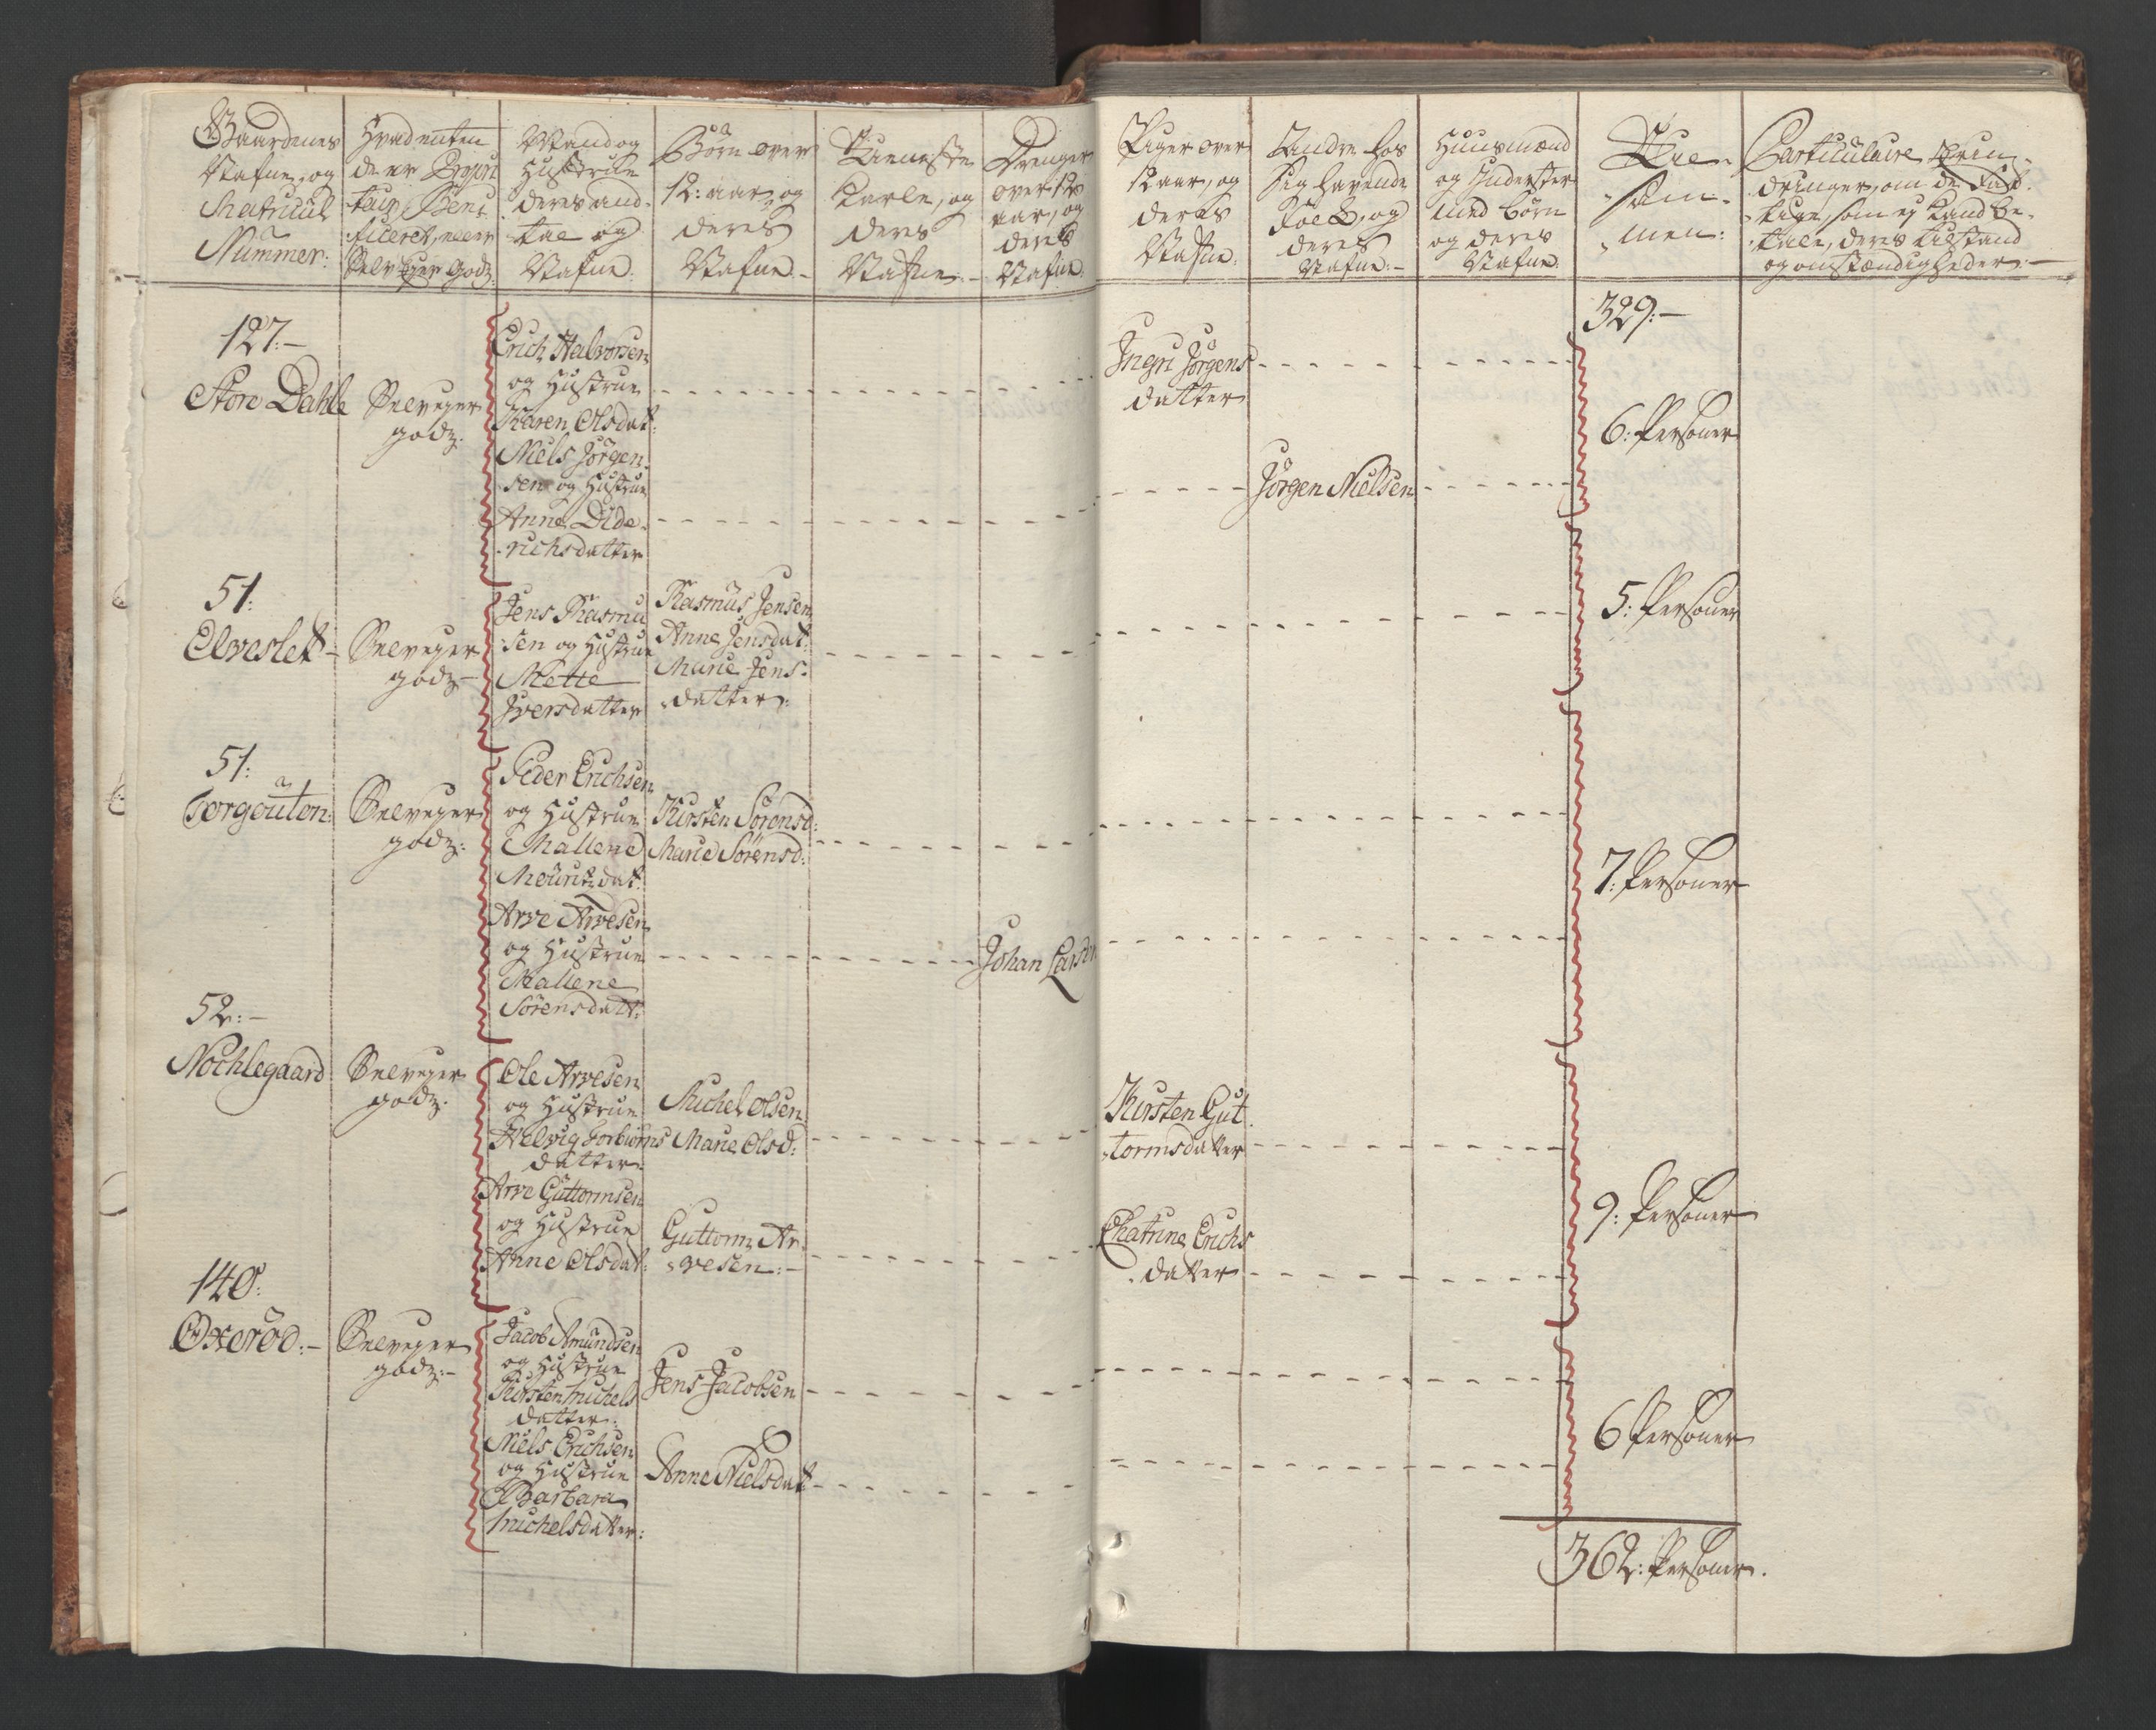 Gaardenes
Nafne, og
Matricul
Nummer:
Hvad enten
de er Propri
tair, Bene
ficeret, eller
Selv Eyer Godz.
Mand og
Hustrue
deres and-
tal og
Nafne.
Börn over
12: aar, og
deres
Nafne.-
Tieneste
Karle, og
deres
Nafne.-
Drenger
over 12
aar, og
deres
Nafne.
Piger over
12 aar, og
deres
Nafne.
Andre hos
sig havende
Folk, og
deres
Nafne.-
Huusmænd
og Inderster
med börn
og deres
Nafne.
Til-
sam-
men:
Particulaire Erin-
dringer, om de Fat-
tige, som ej kand be-
tale, deres tilstand
og omstændigheder.-
329.-
127.-
Store Dahle
Selveyer
godz.
Erich Halvorsen
og Hustrue
Karen Olsdat:
Niels Jörgen-
sen og Hustrue
Anne Dide-
richsdatter
Ingri Jörgens
datter
Jörgen Nielsen
6: Personer
51:
Elveslet-
Selveyer
godz-
Jens Rasmu
sen og Hustrue
Mette
Iversdatter
Rasmus Jensen
Anne Jensdat:
Marie Jens-
datter:
5: Personer
51:
Torgouton:
Selveyer
godz:
Peder Erichsen
og Hustrue
Mallene
Mouritzdat.
Arve Arvesen
og Hustrue
Mallene
Sörensdatt:
Kirsten Sörensd:
Marie Sörensd:
Johan Larsen
7: Personer
52.-
Nochlegaard
Selveyer
godz.
Ole Arvesen
og Hustrue
Helvig Torbiörns
datter
Arve Guttormsen
og Hustrue
Anne Olsdat:
Michel Olsen
Marie Olsd:
Guttorm Ar-
vesen:-
Kirsten Gut
tormsdatter
Chatrine Erichs
datter
9: Personer
140:
Oxeröd:-
Selveyer
godz:-
Jacob Amundsen
og Hustrue
Kirsten Michels
datter.
Niels Erichsen
og Hustrue
Barbara
Michelsdatter:
Jens Jacobsen
Anne Nielsdat
6 Personer
362: Personer.